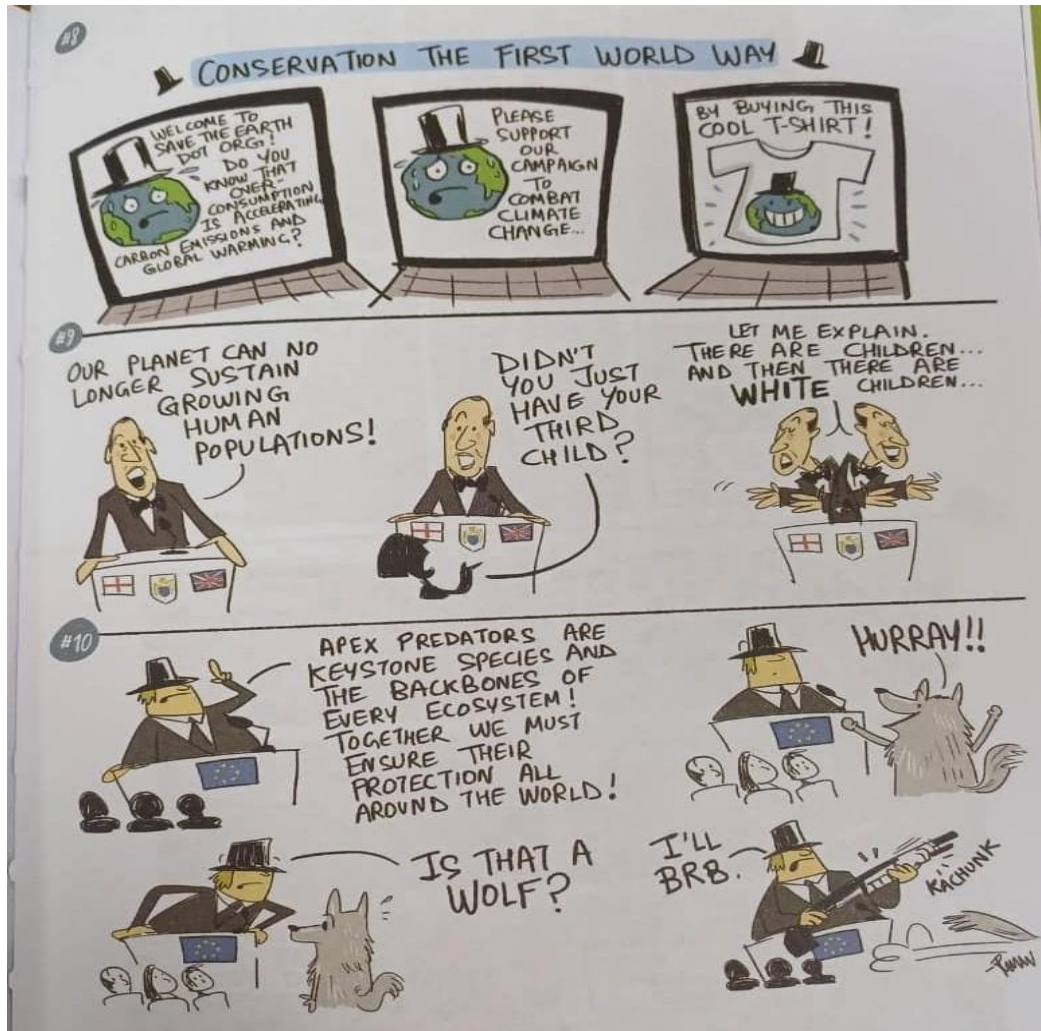 #8
CONSERVATION THE FIRST WORLD WAY
WELCOME TO
SAVE THE EARTH
DOT ORG!
DO YOU
KNOW THAT
OVER-
CONSUMPTION
IS ACCELERATING
CARBON EMISSIONS AND
GLOBAL WARMING?
PLEASE
SUPPORT
OUR
CAMPAIGN
TO
COMBAT
CLIMATE
CHANGE...
BY BUYING THIS
COOL T-SHIRT!
#9
OUR PLANET CAN NO
LONGER SUSTAIN
GROWING
HUMAN
POPULATIONS!
DIDN'T
YOU JUST
HAVE YOUR
THIRD
CHILD?
LET ME EXPLAIN.
THERE ARE CHILDREN...
AND THEN THERE ARE
WHITE CHILDREN...
#10
APEX PREDATORS ARE
KEYSTONE SPECIES AND
THE BACKBONES OF
EVERY ECOSYSTEM!
TOGETHER WE MUST
ENSURE THEIR
PROTECTION ALL
AROUND THE WORLD!
HURRAY!!
IS THAT A
WOLF?
I'LL
BRB.
KACHUNK